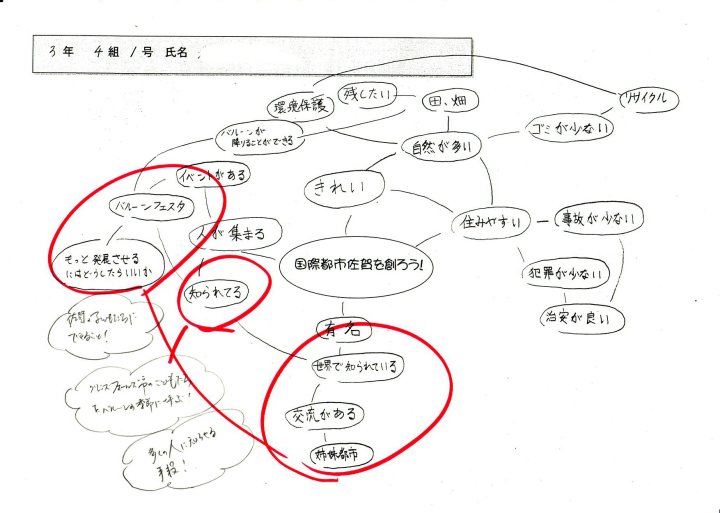 3年 4組 1号 氏名
環境保護
残したい
田、畑
リサイクル
バルーンが
降りることができる
自然が多い
ゴミが少ない
イベントがある
きれい
バルーンフェスタ
人が集まる
住みやすい
事故が少ない
もっと発展させる
にはどうしたらいいか
国際都市佐賀を創ろう!
犯罪が少ない
知られてる
治安が良い
有名
世界で知られている
交流がある
姉妹都市
できること!
多くの人に知らせる
手段!